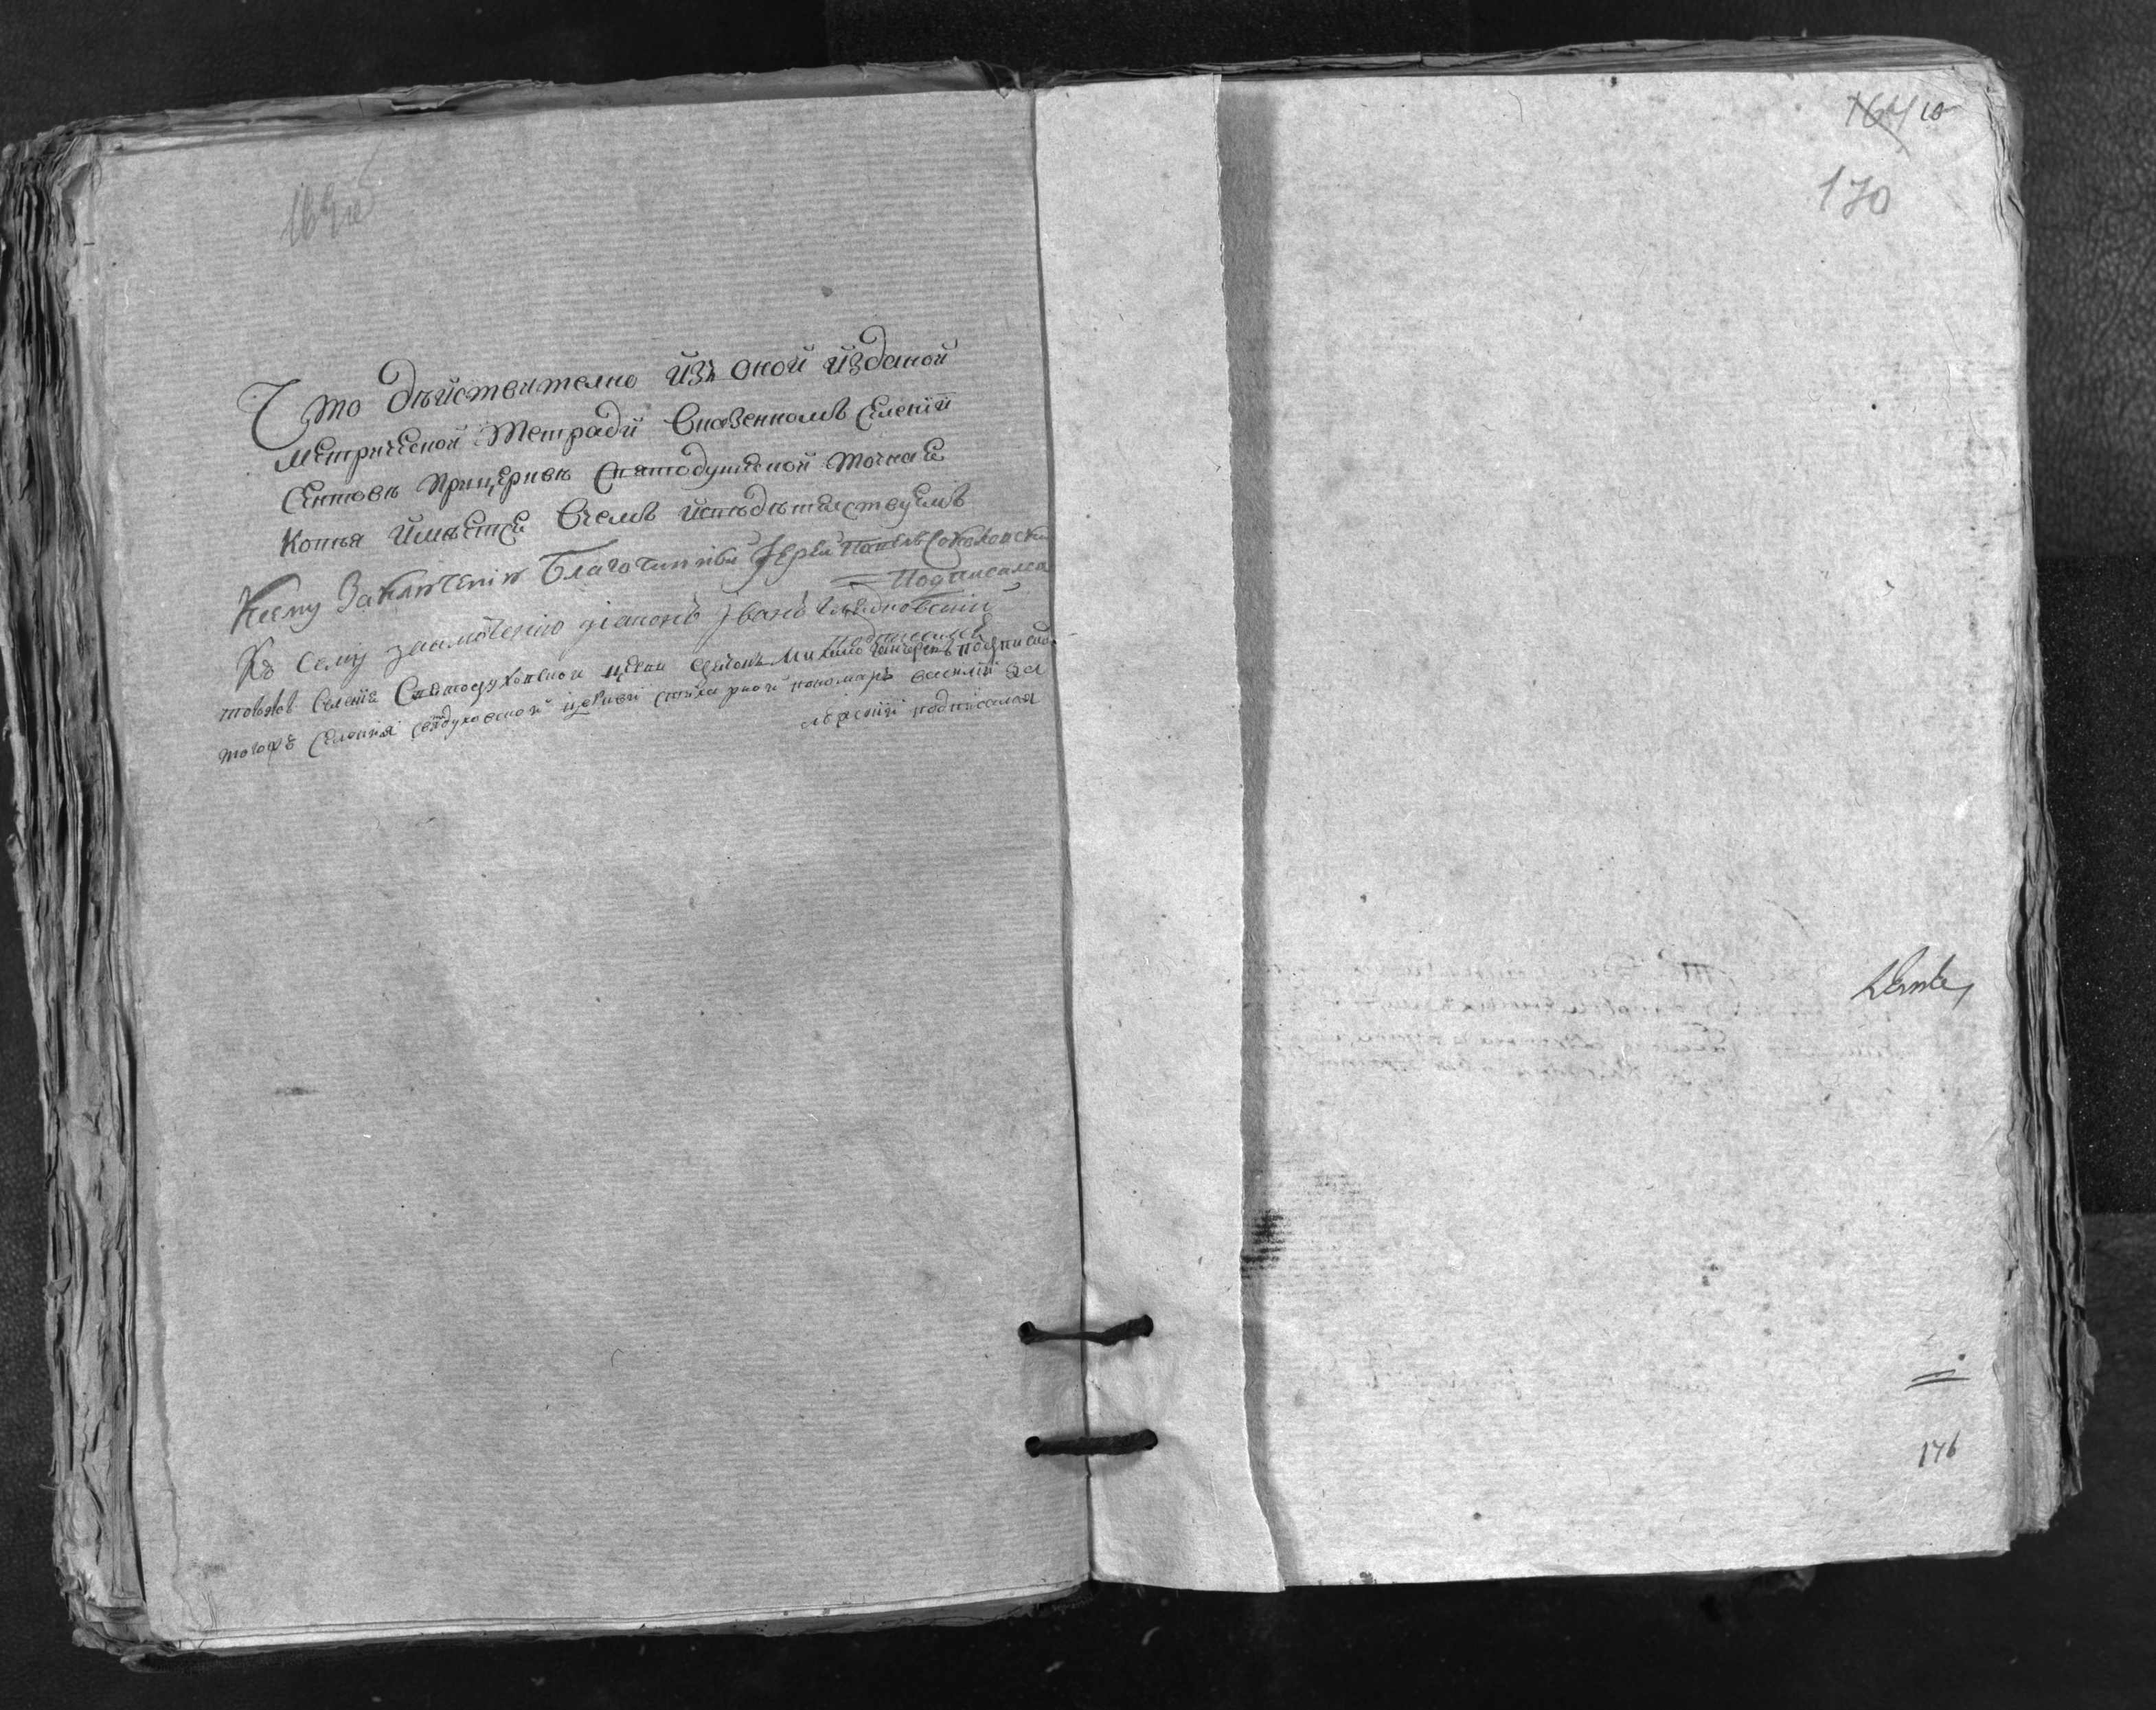 Что дѣйствително йзъ оной йзданой
метрической тетради в казенномъ селеній
при церквѣ Святодуховской точная
Копия ймѣется в чемъ йсвѣдѣтелствуемъ
К сему Заключенію Благочинный Іерей Павелъ Соколовский
Подписался
Къ сему заключению діаконъ Іванъ
подписался
селения Святодуховской церкви Михаило подписался
тогожъ селения святодуховской церкви стихарной пономаръ василий
подписался
164 10
170
176